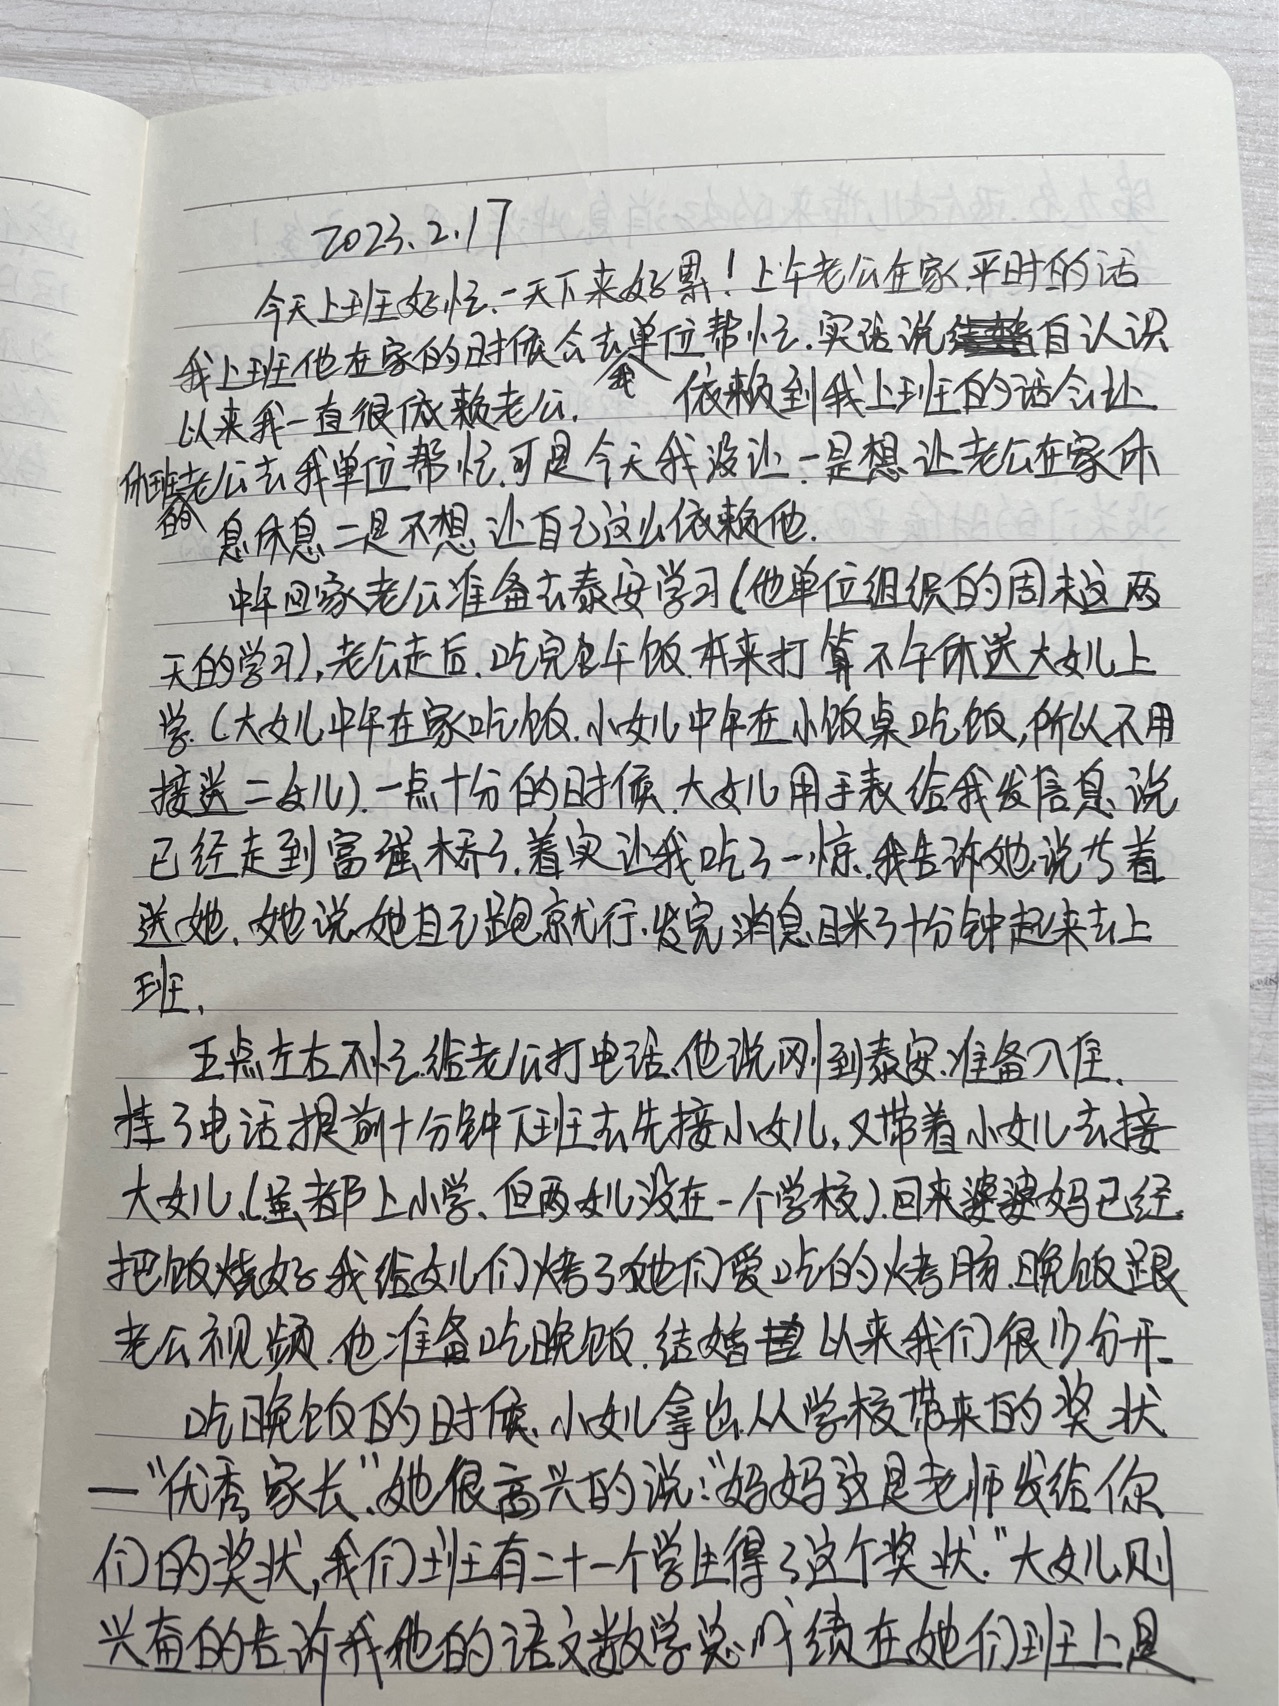 2023.2.17
今天上班好忙.一天下来好累！上午老公在家.平时的话
我上班他在家的时候会去我单位帮忙.实话说自认识
以来我一直很依赖老公. 依赖到我上班的话会让
休班的老公去我单位帮忙.可是今天我没让.一是想让老公在家休
息休息二是不想让自己这么依赖他.
中午回家老公准备去泰安学习(他单位组织的周末这两
天的学习),老公走后.吃完午饭.本来打算不午休送大女儿上
学.(大女儿中午在家吃饭.小女儿中午在小饭桌吃饭,所以不用
接送二女儿).一点十分的时候.大女儿用手表给我发信息说
已经走到富强桥了.着实让我吃了一惊.我告诉她说等着
送她.她说她自己跑就行.发完消息眯了十分钟起来去上
班.
五点左右不忙.给老公打电话.他说刚到泰安.准备入住.
挂了电话提前十分钟下班去先接小女儿,又带着小女儿去接
大女儿.(虽都上小学、但两女儿没在一个学校).回来婆婆妈已经
把饭烧好.我给女儿们烤了她们爱吃的烤肠.晚饭跟
老公视频.他准备吃晚饭.结婚以来我们很少分开.
吃晚饭的时候.小女儿拿出从学校带来的奖状
—“优秀家长”.她很高兴的说:“妈妈这是老师发给你
们的奖状,我们班有二十一个学生得了这个奖状.”大女儿则
兴奋的告诉我她的语文数学总成绩在她们班上是